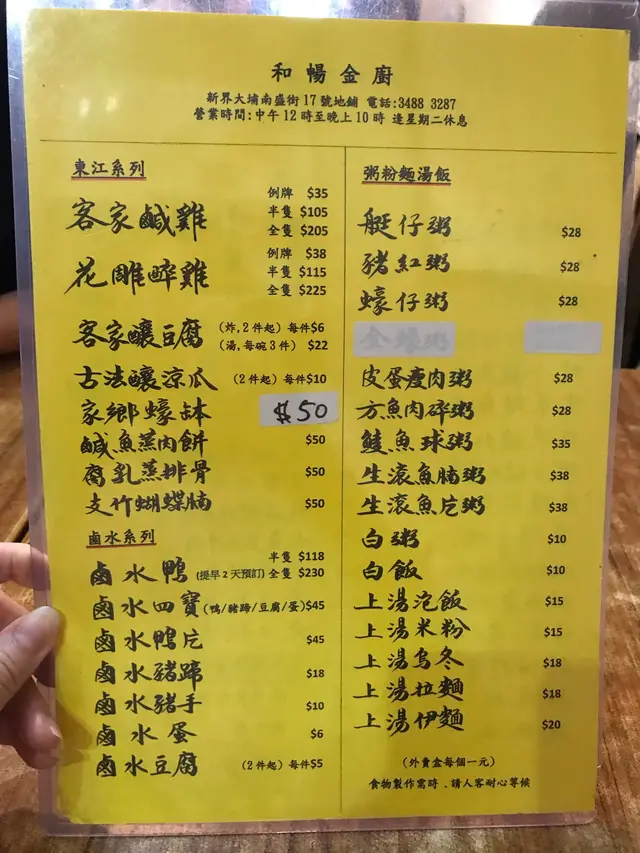 和暢金廚
新界大埔南盛街17號地鋪 電話:3488 3287
營業時間:中午12時至晚上10時 逢星期二休息
東江系列
客家鹹雞 例牌 $35
半隻 $105
全隻 $205
花雕醉雞 例牌 $38
半隻 $115
全隻 $225
客家釀豆腐 (炸,2件起) 每件$6
(湯,每碗3件) $22
古法釀涼瓜 (2件起) 每件$10
家鄉蠔缽 $50
鹹魚蒸肉餅 $50
腐乳蒸排骨 $50
支竹蝴蝶腩 $50
鹵水系列
鹵水鴨 (提早2天預訂) 半隻 $118
全隻 $230
鹵水四寶(鴨/豬蹄/豆腐/蛋)$45
鹵水鴨片 $45
鹵水豬蹄 $18
鹵水豬手 $10
鹵水蛋 $6
鹵水豆腐 (2件起) 每件$5
粥粉麵湯飯
艇仔粥 $28
豬紅粥 $28
蠔仔粥 $28
皮蛋瘦肉粥 $28
方魚肉碎粥 $28
鯪魚球粥 $35
生滾魚腩粥 $38
生滾魚片粥 $38
白粥 $10
白飯 $10
上湯泡飯 $15
上湯米粉 $15
上湯烏冬 $18
上湯拉麵 $18
上湯伊麵 $20
(外賣盒每個一元)
食物製作需時、請人客耐心等候